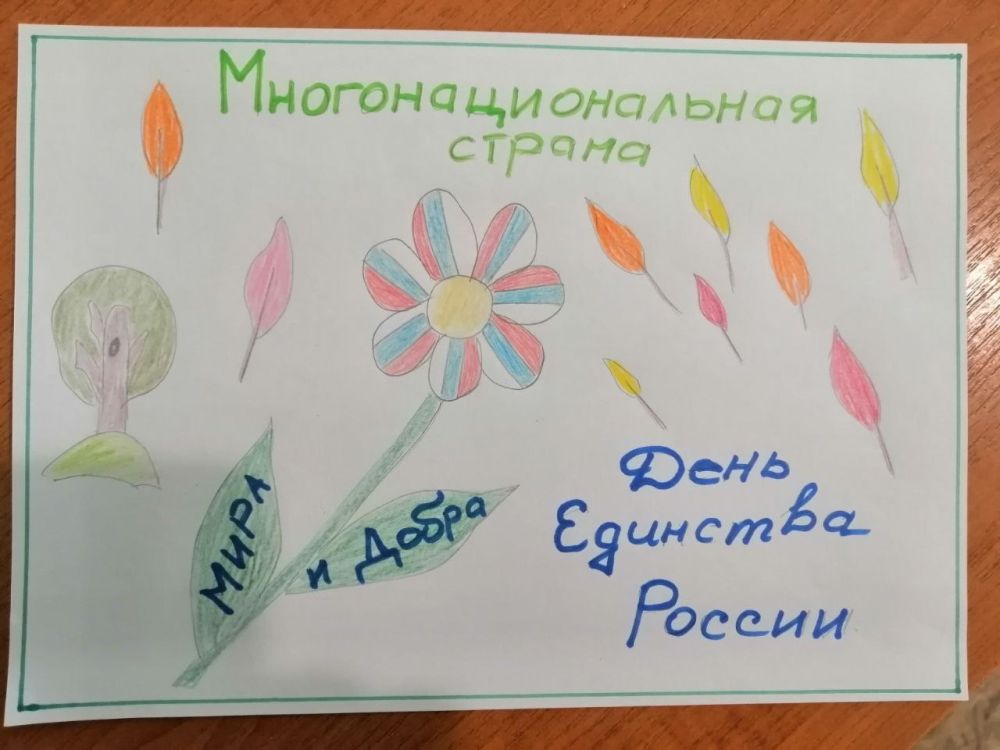 Многонациональная
страна
Мира
и Добра
День
Единства
России